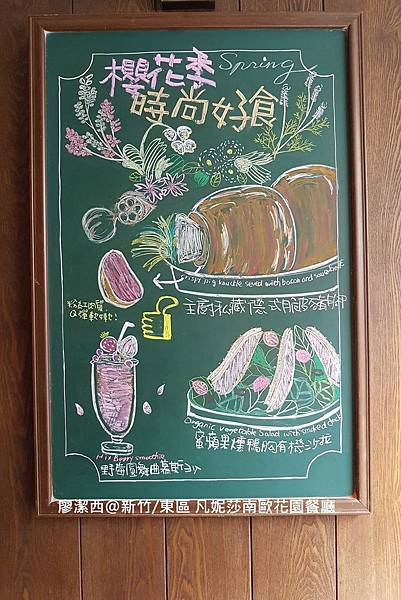 櫻花季
Spring
時尚好食
crispy pig knuckle served with bacon and
主廚私藏德式脆皮豬腳
粉紅肉質
Q彈軟嫩!
Organic vegetable salad with smoked duck
蜜蘋果燻鴨胸有機沙拉
Mix Berry smoothie
野莓圓舞曲慕思
廖潔西@新竹/東區 凡妮莎南歐花園餐廳